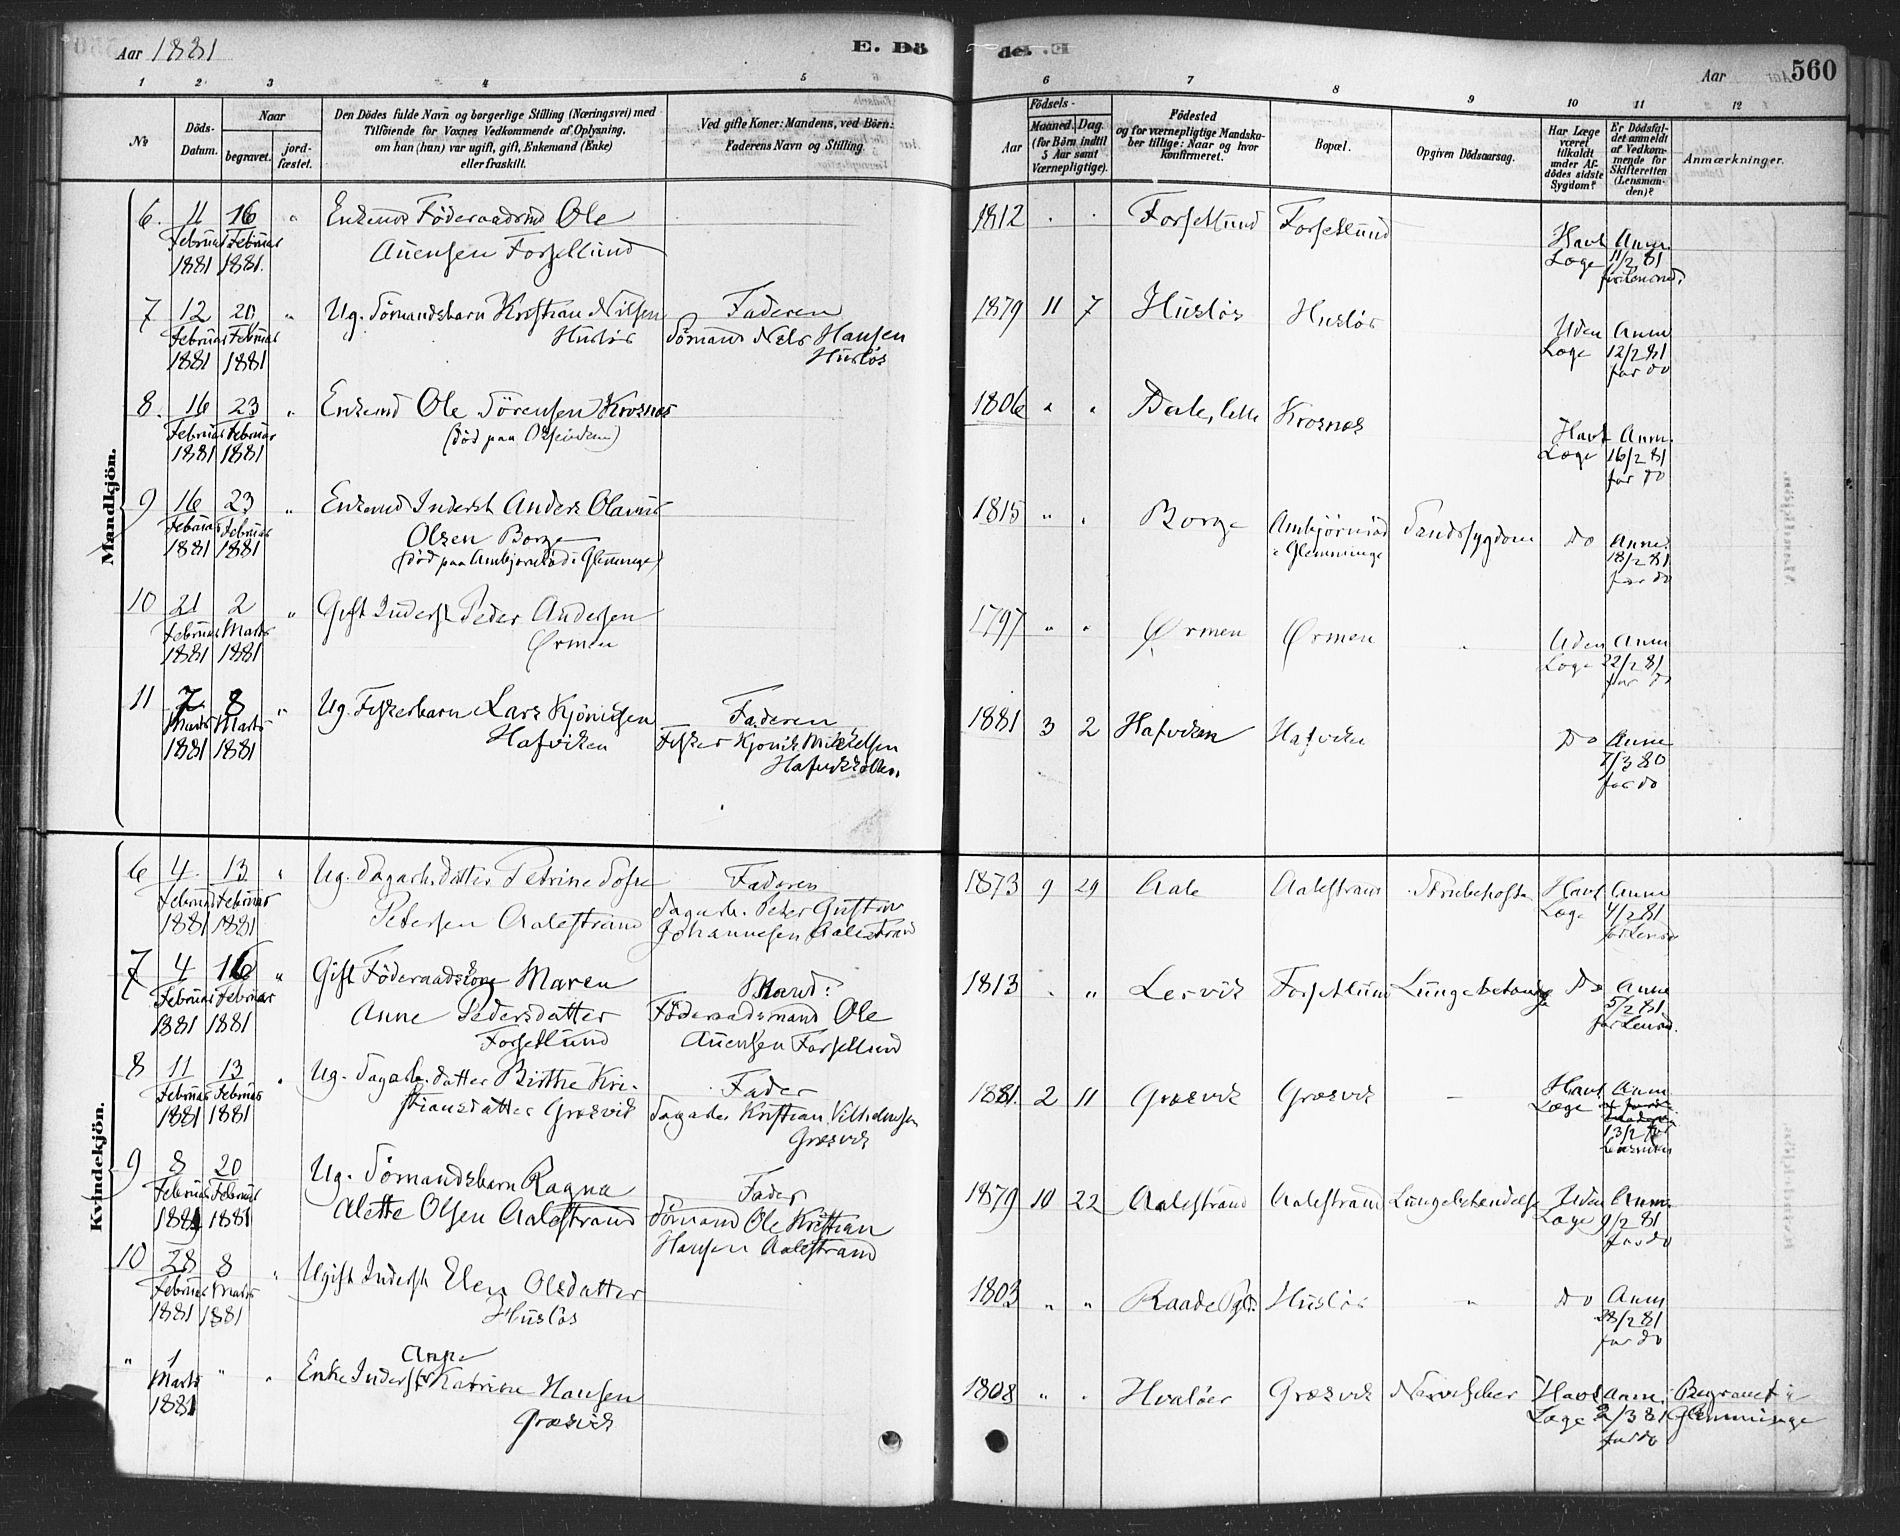 Aar 1881
E. Dö
de. E
Aar
560
1 2 3 4 5
6 7 8 9 10 11 12
No
Döds-
Datum.
Naar
begravet.
jord-
fæstet.
Den Dödes fulde Navn og borgerlige Stilling (Næringsvei) med
Tilföiende for Voxnes Vedkommende af Oplysning,
om han (hun) var ugift, gift, Enkemand (Enke)
eller fraskilt.
Ved gifte Koner: Mandens, ved Börn:
Faderens Navn og Stilling.
Födsels-
Aar
Maaned. Dag.
(for Börn indtil
5 Aar samt
Værnepligtige).
Födested
og for værnepligtige Mandska-
ber tillige: Naar og hvor
konfirmeret.
Bopæl.
Opgiven Dödsaarsag.
Har Læge
været
tilkaldt
under Af-
dödes sidste
Sygdom?
Er Dödsfal-
det anmeldt
af Vedkom-
mende for
Skifteretten
(Lensman-
den)?
Anmærkninger.
Mandkjön.
6. 11 Februar 1881 16 Februar 1881. "
Enkemd Föderaadsmd Ole
Auensen Forsetlund
1812 Forsetlund Forsetlund
Havt Læge Anm. 11/2 81 for Lensmd.
7 12 Februar 1881 20 Februar 1881 "
Ug. Sömandsbarn Kristian Nilsen
Huslös
Faderen
Sömand Nels Hansen
Huslös
1879 11 7 Huslös Huslös
Uden Læge Anm 12/2 81 for do
8. 16 Februar 1881 23 Februar 1881 "
Enkemd Ole Sörensen Krosnes
(död paa
1806 " " Krosnes
Havt Læge Anm. 16/2 81 for do
9 16 Februar 1881 23 Februar 1881 "
Enkemd Inderst Anders Olaves
Olsen Borge
(död paa Ambjörnröd i Glemminge)
1815 " " Borge Ambjörnröd
i Glemminge
do Anm. 18/2 81 for do
10 21 Februar 1881 2 Marts 1881 "
Gift Inderst Peder Andersen
Ørmen
1797 " " Ørmen Ørmen "
Uden Læge Anm 22/2 81 for do
11 7 Marts 1881 8 Marts 1881 "
Ug. Fiskerbarn Lars Kjönigsen
Hafviken
Faderen
Fisker Kjönik Mikkelsen
1881 3 2 Hafviken Hafviken
Do Anm 7/3 80 for do
Kvindekjön.
6 4 Februar 1881 13 Februar 1881 "
Ug. Sagarb. datter Petrine Sofie
Petersen Aalestrand
Faderen
Sagarb. Peter Gustav
Johannesen Aalestrand
1873 9 29 Aale Aalestrand Strubehoste
Havt Læge Anm 4/2 81 for Lensd
7 4 Februar 1881 16 Februar 1881 "
Gift Föderaadskone Maren
Anne Pedersdatter
Forsetlund
Mand:
Föderaadsmand Ole
Auensen Forsetlund
1813 " " Lervik Forsetlund Lungebetændelse
Do Anm 5/2 81 for Lensd.
8 11 Februar 1881 13 Februar 1881
Ug. Sagarb. datter Birthe Kri-
stiansdatter Græsvik
Fader
Sagarb. Kristian Vilhelmsen
Græsvik
1881. 2 11 Græsvik Græsvik —
Havt Læge Anm 13/2
9 8 Februar 1881 20 Februar 1881
Ug. Sömandsbarn Ragna
Alette Olsen Aalestrand
Fader
Sömand Ole Kristian
Hansen Aalestrand
1879 10 22 Aalestrand Aalestrand Lungebetændelse
Uden Læge Anm. 9/2 81 for do
10 28 Februar 1881 8 Marts 1881 "
Ugift Inderst Elen Olsdatter
Huslös
1803 " " Raade Pgld. Huslös "
do Anm 28/2 81 for do
" 1 Marts 1881 " "
Anne
Enke Inderst Katrine Hansen
Græsvik
1808 " " Hvaløer Græsvik Nervefeber
Havt Læge Anm. 2/3 81 for do
Begravet i
Glemminge